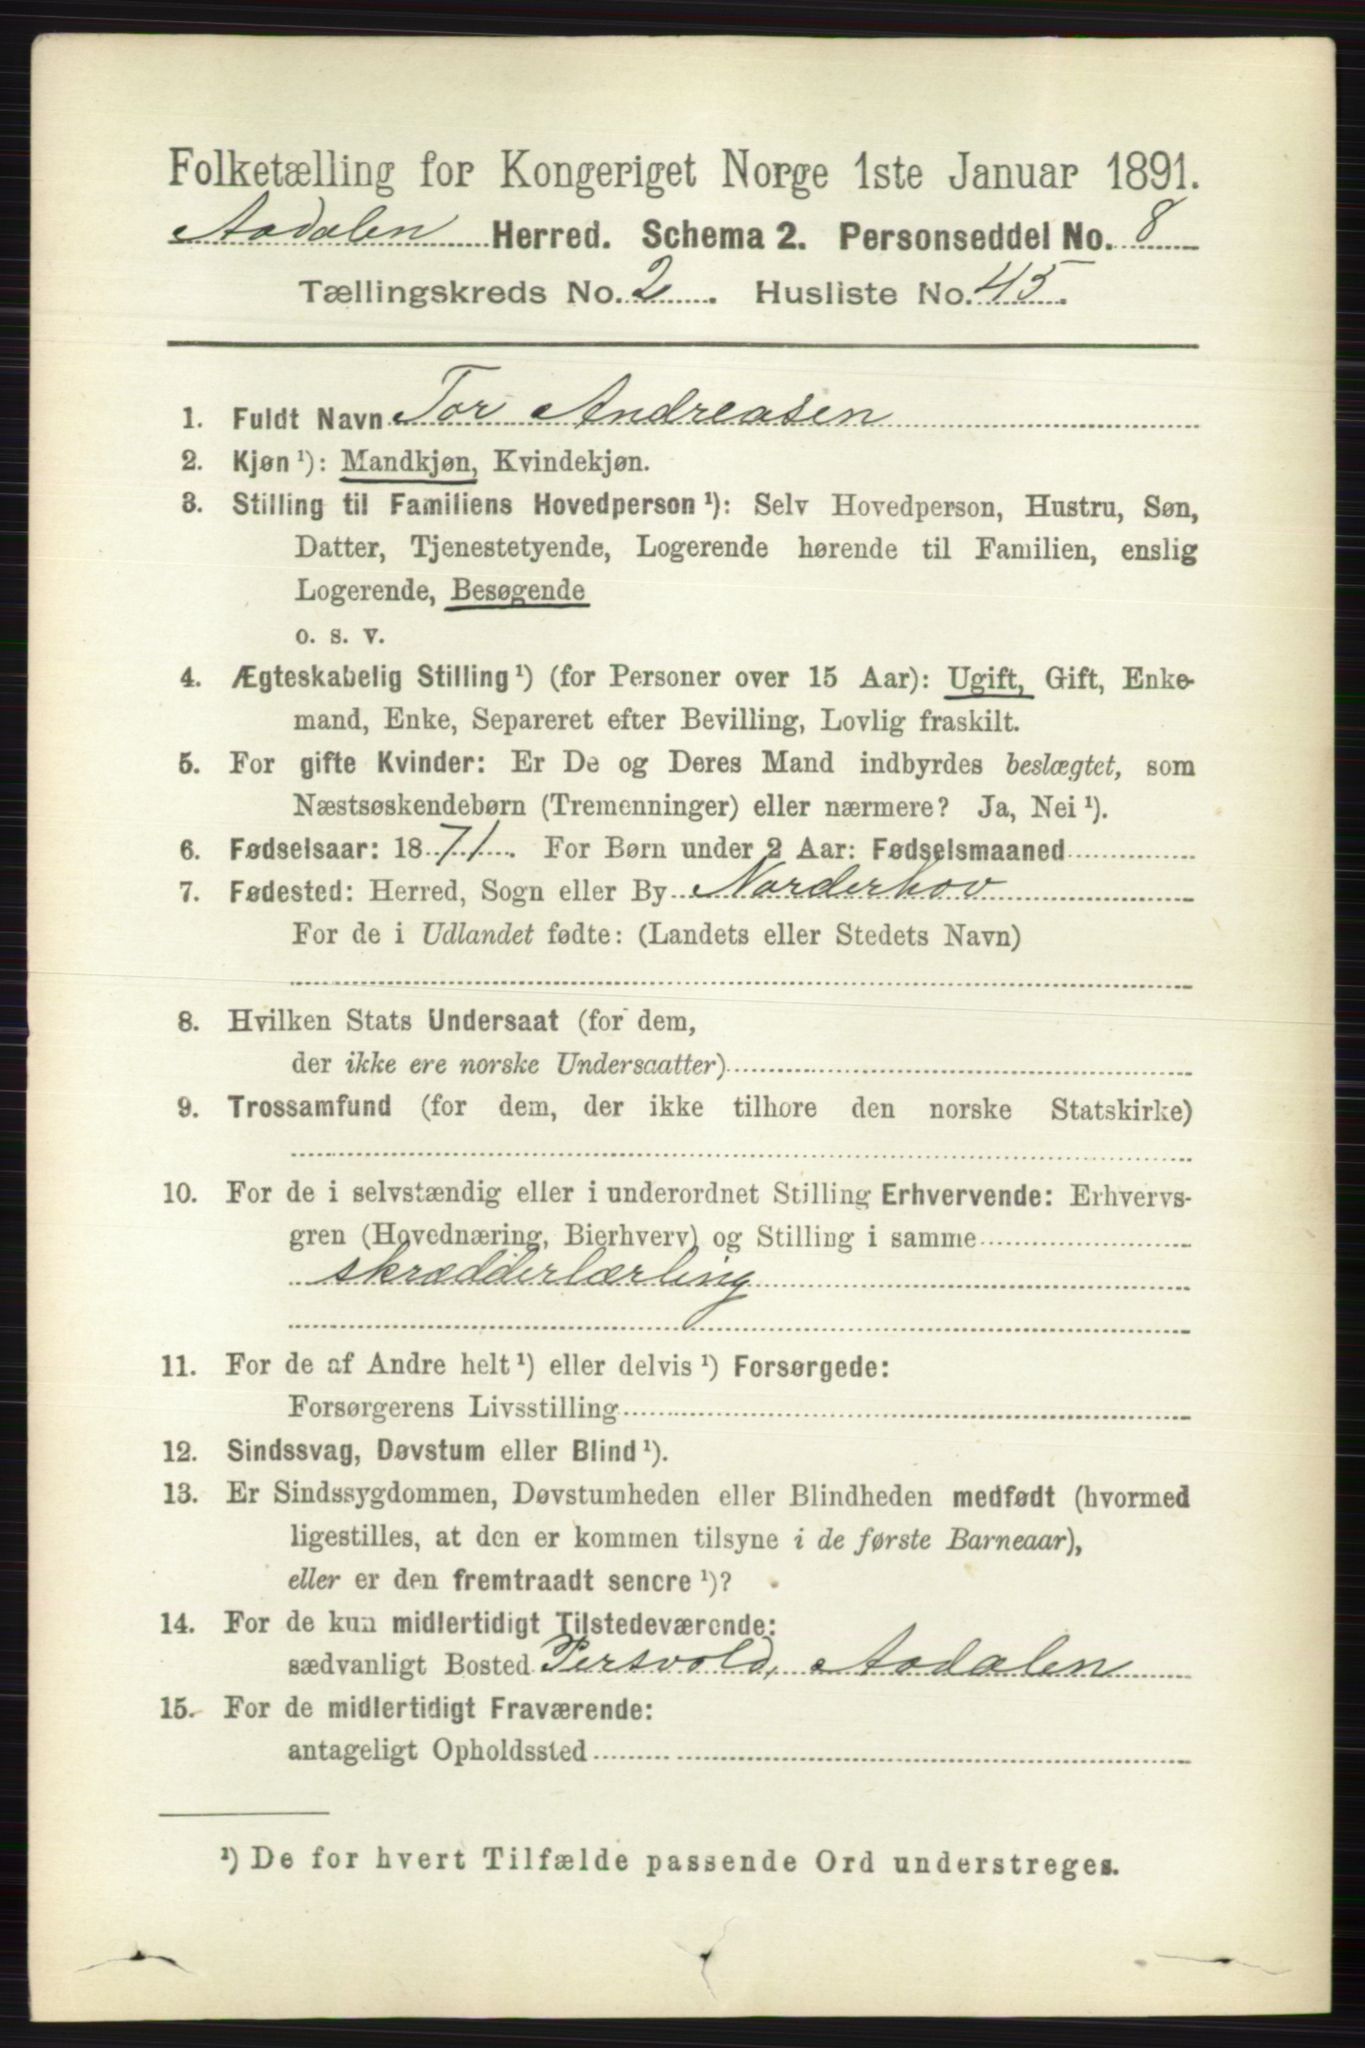 Folketælling for Kongeriget Norge 1ste Januar 1891.
Aadalen Herred. Schema 2. Personseddel No. 8
Tællingskreds No. 2. Husliste No. 45.
1. Fuldt Navn Tor Andreasen
2. Kjøn ¹): Mandkjøn, Kvindekjøn.
3. Stilling til Familiens Hovedperson ¹): Selv Hovedperson, Hustru, Søn,
Datter, Tjenestetyende, Logerende hørende til Familien, enslig
Logerende, Besøgende
o. s. v.
4. Ægteskabelig Stilling ¹) (for Personer over 15 Aar): Ugift, Gift, Enke-
mand, Enke, Separeret efter Bevilling, Lovlig fraskilt.
5. For gifte Kvinder: Er De og Deres Mand indbyrdes beslægtet, som
Næstsøskendebørn (Tremenninger) eller nærmere? Ja, Nei ¹).
6. Fødselsaar: 1871. For Børn under 2 Aar: Fødselsmaaned
7. Fødested: Herred, Sogn eller By Norderhov
For de i Udlandet fødte: (Landets eller Stedets Navn)
8. Hvilken Stats Undersaat (for dem,
der ikke ere norske Undersaatter)
9. Trossamfund (for dem, der ikke tilhore den norske Statskirke)
10. For de i selvstændig eller i underordnet Stilling Erhvervende: Erhvervs-
gren (Hovednæring, Bierhverv) og Stilling i samme
skrædderlærling
11. For de af Andre helt ¹) eller delvis ¹) Forsørgede:
Forsørgerens Livsstilling
12. Sindssvag, Døvstum eller Blind ¹).
13. Er Sindssygdommen, Døvstumheden eller Blindheden medfødt (hvormed
ligestilles, at den er kommen tilsyne i de første Barneaar),
eller er den fremtraadt senere ¹)?
14. For de kun midlertidigt Tilstedeværende:
sædvanligt Bosted Persvold, Aadalen
15. For de midlertidigt Fraværende:
antageligt Opholdssted
¹) De for hvert Tilfælde passende Ord understreges.